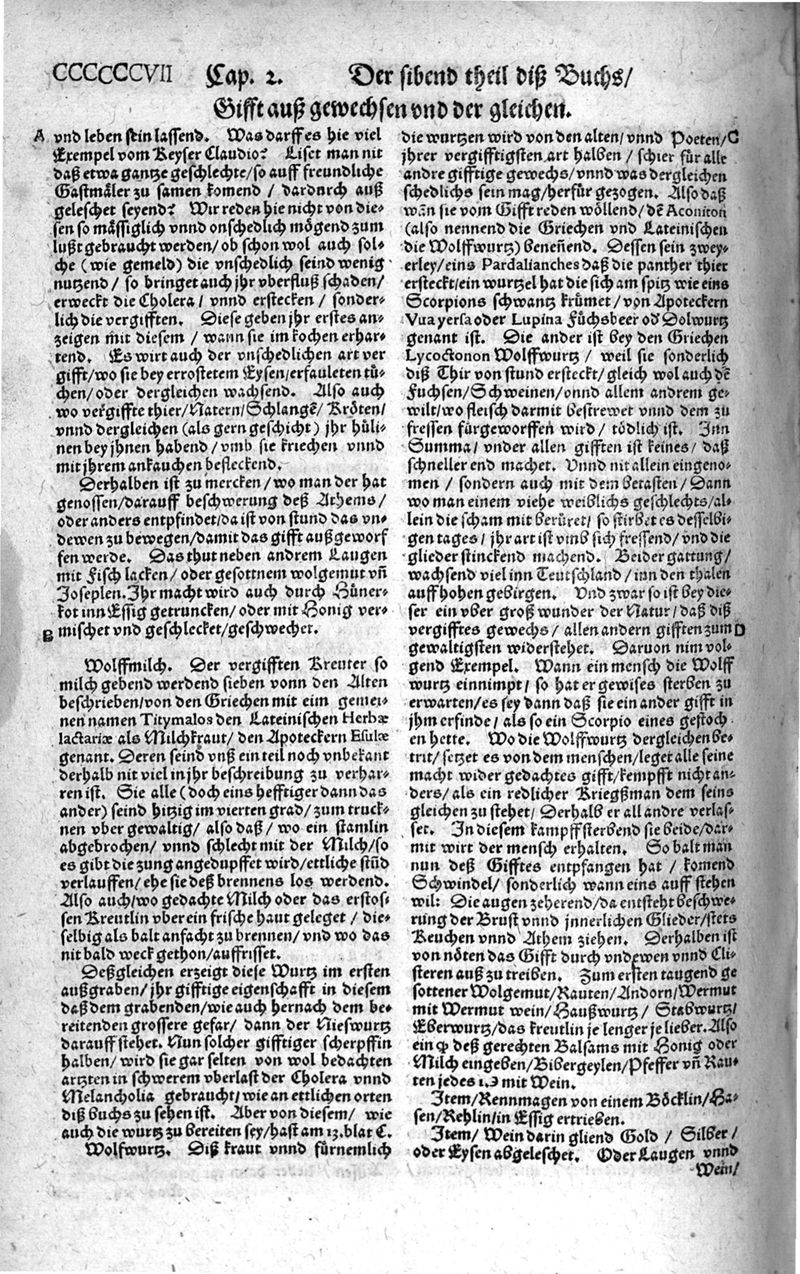 CCCCCCVII Cap. 2. Der sibend theil diß Buchs/
Gifft auß gewechsen vnd der gleichen.
A vnd leben stin lassend. Was darff es hie viel
Exempel vom Keyser Claudio? Liset man nit
daß etwa gantze geschlechte/so auff freundliche
Gastmäler zu samen komend / dardurch auß
geleschet seyend? Wir reden hie nicht von die-
sen so mässiglich vnnd onschedlich mögend zum
lußt gebraucht werden/ob schon wol auch sol-
che (wie gemeld) die vnschedlich seind wenig
nutzend / so bringet auch jhr vberfluß schaden/
erweckt die Cholera / vnnd erstecken / sonder-
lich die vergifften. Diese geben jhr erstes an-
zeigen mit diesem / wann sie im kochen erhar-
tend. Es wirt auch der vnschedlichen art ver
gifft/wo sie bey errostetem Eysen/erfauleten tü-
chen/oder dergleichen wachsend. Also auch
wo vergiffte thier/Natern/Schlangē/Kröten/
vnnd dergleichen (als gern geschicht) jhr hüli-
nen bey jhnen habend/vmb sie kriechen vnnd
mit jhrem ankauchen befleckend.
Derhalben ist zu mercken/wo man der hat
genossen/darauff beschwerung deß Athems/
oder anders entpfindet/da ist von stund das vn-
dewen zu bewegen/damit das gifft außgeworf
fen werde. Das thut neben andrem Laugen
mit Fisch lacken/oder gesottnem wolgemut vñ
Joseplen. Jhr macht wird auch durch Hüner-
kot inn Essig getruncken/oder mit Honig ver-
B mischet vnd geschlecket/geschwechet.
Wolffmilch. Der vergifften Kreuter so
milch gebend werdend sieben vonn den Alten
beschrieben/von den Griechen mit eim gemei-
nen namen Titymalos den Lateinischen Herbæ
lactariæ als Milchkraut/den Apoteckern Esulæ
genant. Deren seind vnß ein teil noch vnbekant
derhalb nit viel in jhr beschreibung zu verhar-
ren ist. Sie alle (doch eins hefftiger dann das
ander) seind hitzig im vierten grad/zum truck-
nen vber gewaltig/also daß/wo ein stamlin
abgebrochen/vnnd schlecht mit der Milch/so
es gibt die zung angedupffet wird/ettliche stūd
verlauffen/ehe sie deß brennens los werdend.
Also auch/wo gedachte Milch oder das erstos-
sen Kreutlin vber ein frische haut geleget / die-
selbig als balt anfacht zu brennen/vnd wo das
nit bald weck gethon/auffrisset.
Deßgleichen erzeigt diese Wurtz im ersten
außgraben/jhr gifftige eigenschafft in diesem
daß dem grabenden/wie auch hernach dem be-
reitenden grossere gefar/dann der Nieswurtz
darauff stehet. Nun solcher gifftiger scherpffin
halben/wird sie gar selten von wol bedachten
artzten in schwerem vberlast der Cholera vnnd
Melancholia gebraucht/wie an ettlichen orten
diß buchs zu sehen ist. Aber von diesem/ wie
auch die wurtz zu bereiten sey/hast am 13.blat C.
Wolfwurtz. Diß kraut vnnd fürnemlich
die wurtzen wird von den alten/vnnd Poeten/ C
jhrer vergifftigsten art halben / schier für alle
andre gifftige gewechs/vnnd was dergleichen
schedlichs sein mag/herfür gezogen. Also daß
wān sie vom Gifft reden wöllend/dē Aconiton
(also nennend die Griechen vnd Lateinischen
die Wolffwurtz) beneñend. Dessen sein zwey-
erley/eins Pardalianches daß die panther thier
ersteckt/ein wurtzel hat die sich am spitz wie eins
Scorpions schwantz krümet/von Apoteckern
Vua versa oder Lupina Füchsbeer od' Dolwurtz
genant ist. Die ander ist bey den Griechen
Lycoctonon Wolffwurtz / weil sie sonderlich
diß Thir von stund ersteckt/gleich wol auch dē
Fuchsen/Schweinen/vnnd allem andrem ge-
wilt/wo fleisch darmit bestrewet vnnd dem zu
fressen fürgeworffen wird/ tödlich ist. Inn
Summa/vnder allen gifften ist keines/ daß
schneller end machet. Vnnd nit allein eingeno-
men / sondern auch mit dem betasten/Dann
wo man einem viehe weiblichs geschlechts/al-
lein die scham mit berüret/so stirbet es desselbi-
gen tages/jhr art ist vmb sich fressend/vnd die
glieder stinckend machend. Beider gattung/
wachsend viel inn Teutschland/inn den thalen
auff hohen gebirgen. Vnd zwar so ist bey die-
ser ein vber groß wunder der Natur/daß diß
vergifftes gewechs/ allen andern gifften zum D
gewaltigsten widerstehet. Daruon nim vol-
gend Exempel. Wann ein mensch die Wolff
wurtz einnimpt/ so hat er gewises sterben zu
erwarten/es sey dann daß sie ein ander gifft in
jhm erfinde/als so ein Scorpio eines gestoch
en hette. Wo die Wolffwurtz dergleichen be-
trit/setzet es von dem menschen/leget alle seine
macht wider gedachtes gifft/kempfft nicht an-
ders/als ein redlicher Kriegßman dem seins
gleichen zu stehet/Derhalb er all andre verlas-
set. In diesem kampff sterbend sie beide/dar-
mit wirt der mensch erhalten. So balt man
nun deß Gifftes entpfangen hat / komend
Schwindel/ sonderlich wann eins auff stehen
wil: Die augen zeherend/da entsteht beschwe-
rung der Brust vnnd jnnerlichen Glieder/stets
Keuchen vnnd Athem ziehen. Derhalben ist
von nöten das Gifft durch vndewen vnnd Cli-
steren auß zu treiben. Zum ersten taugend ge
sottener Wolgemut/Rauten/Andorn/Wermut
mit Wermut wein/Haußwurtz/ Stabwurtz/
Eberwurtz/das kreutlin je lenger je lieber. Also
ein deß gerechten Balsams mit Honig oder
Milch eingeben/Bibergeylen/Pfeffer vñ Rau-
ten jedes mit Wein.
Item/Rennmagen von einem Böcklin/Ha-
sen/Rehlin/in Essig ertrieben.
Item/ Wein darin gliend Gold / Silber /
oder Eysen abgeleschet. Oder Laugen vnnd
Wein/